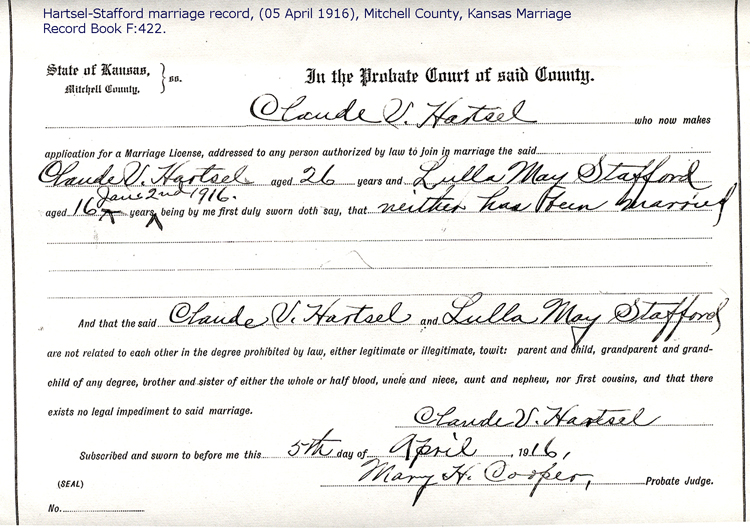 Hartsel-Stafford marriage record, (05 April 1916), Mitchell County, Kansas Marriage
Record Book F:422.
State of Kansas, } ss.
Mitchell County.
In the Probate Court of said County.
Claude V. Hartsel who now makes
application for a Marriage License, addressed to any person authorized by law to join in marriage the said
Claude V. Hartsel aged 26 years and Lulla May Stafford
June 2nd 1916.
aged 16 years, being by me first duly sworn doth say, that neither has been married
And that the said Claude V. Hartsel and Lulla May Stafford
are not related to each other in the degree prohibited by law, either legitimate or illegitimate, towit: parent and child, grandparent and grand-
child of any degree, brother and sister of either the whole or half blood, uncle and niece, aunt and nephew, nor first cousins, and that there
exists no legal impediment to said marriage.
Claude V. Hartsel
Subscribed and sworn to before me this 5th day of April, 1916,
Mary H. Cooper, Probate Judge.
(SEAL)
No.